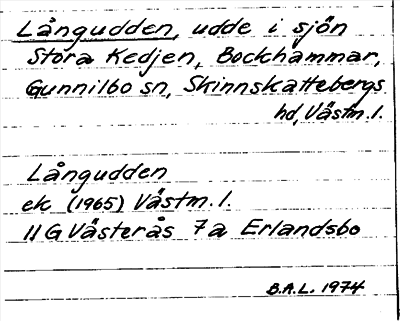 Långudden, udde i sjön
Stora Kedjen, Bockhammar,
Gunnilbo sn, Skinnskattebergs
hd, Västm. l.
Långudden
ek (1965) Västm. l.
11 G Västerås 7a Erlandsbo
B.A.L. 1974